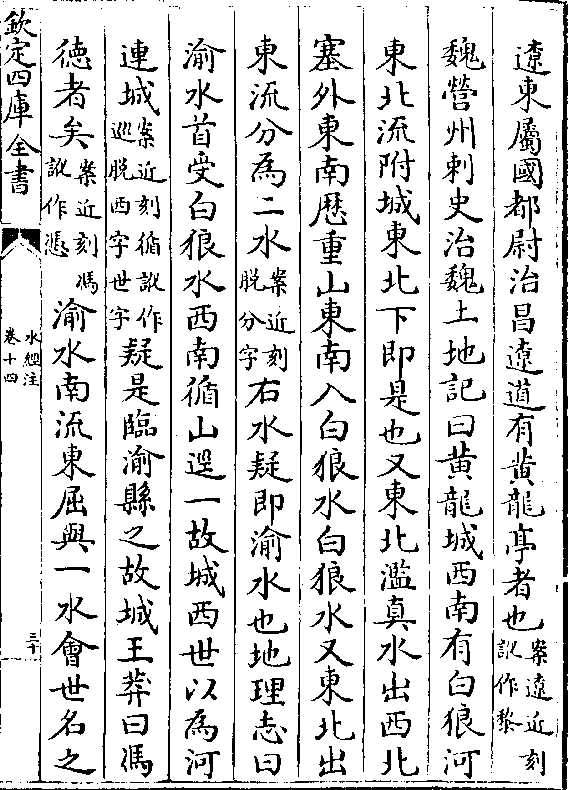 遼東屬國都尉治昌遼道有黄龍亭者也案遼近刻訛作黎
魏營州刺史治魏土地記曰黄龍城西南有白狼河
東北流附城東北下即是也又東北濫真水出西北
塞外東南歷重山東南入白狼水白狼水又東北出
東流分為二水案近刻脱分字右水疑即渝水也地理志曰
渝水首受白狼水西南循山逕一故城西世以為河
連城案近刻循訛作巡脱西字世字疑是臨渝縣之故城王莽曰馮
徳者矣案近刻馮訛作憑渝水南流東屈與一水會世名之
欽定四庫全書
水經注
卷十四
三十